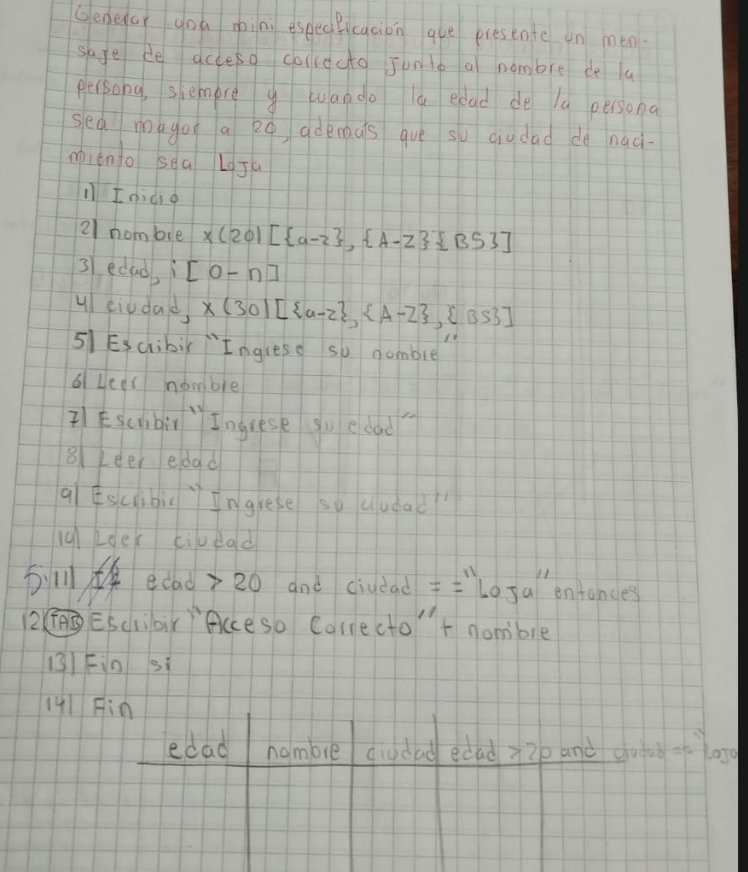 Generar una mini especificación que presente un men-
saje de acceso correcto junto al nombre de la
persona, siempre y cuando la edad de la persona
sea mayor a 20, además que su ciudad de naci-
miento sea Loja
1) Inicio
2) nombre x(20)[{a-z},{A-Z}{BS}]
3) edad, i[0-n]
4) ciudad, x(30)[{a-z},{A-Z},{BS}]
5) Escribir "Ingrese su nombre"
6) Leer nombre
7) Escribir "Ingrese su edad"
8) Leer edad
9) Escribir "Ingrese su ciudad"
10) Leer ciudad
11) Si edad > 20 and ciudad == "Loja" entonces
12) TAB Escribir "Acceso Correcto" + nombre
13) Fin si
14) Fin
edad nombre ciudad edad > 20 and ciudad == "Loja